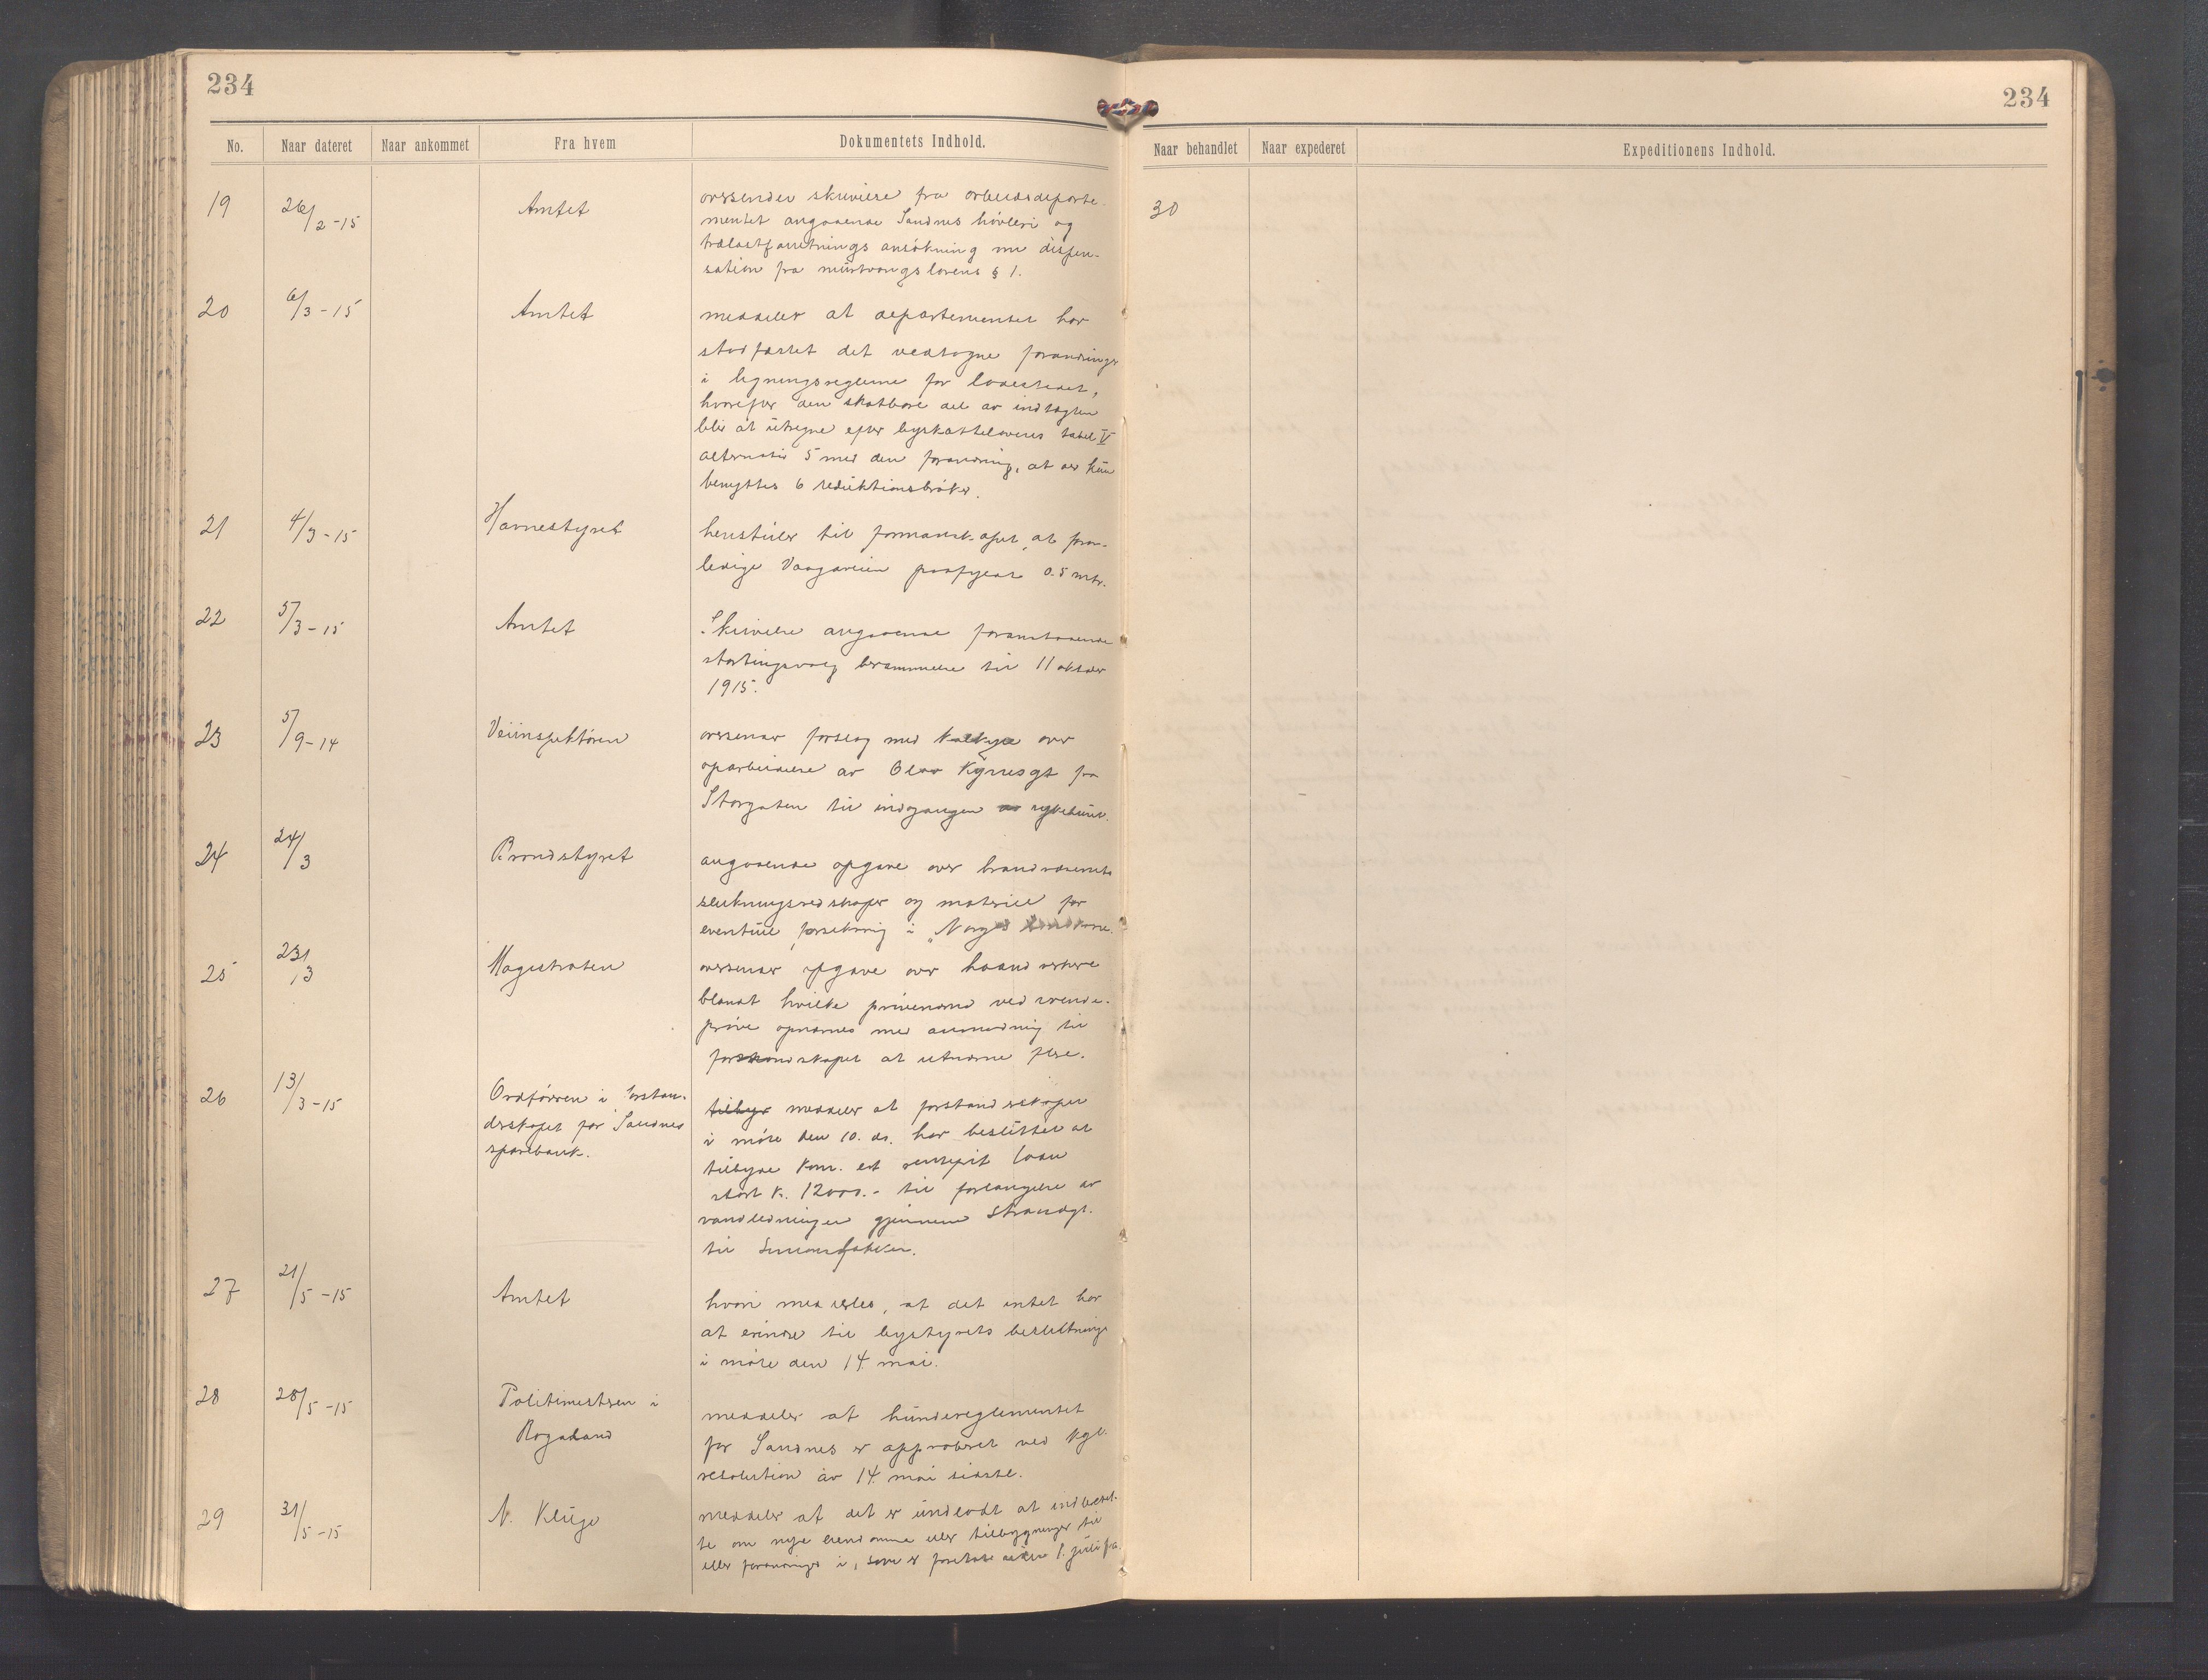 234
234
No. Naar dateret Naar ankommet Fra hvem Dokumentets Indhold.
Naar behandlet Naar expederet Expeditionens Indhold.
19 26/2-15 Amtet oversender skrivelse fra arbeidsdeparte-
mentet angaaende Sandnes høvleri og
trælastforretnings ansøkning om dispen-
sation fra murtvangslovens § 1.
30
20 6/3-15 Amtet meddeler at departementet har
stadfæstet det vedtagne forandringer
i ligningsreglerne for ladestedet,
hvorefter den skatbare del av indtægten
blir at utregne efter byskattelovens tabel V
alternativ 5 med den forandring, at der kun
benyttes 6 reduktionsbrøker.
21 4/3-15 Havnestyret henstiller til formannskapet at
Vaagaveien paafyldt 0.5 mtr.
22 5/3-15 Amtet Skrivelse angaaende forestaaende
stortingsvalg berammelse til 11 oktober
1915.
23 5/9-14 Veiinspektøren oversender forslag med over
oparbeidelse av Olav Kyrresgt fra
Storgaten til indgangen sykehuset.
24 24/3 Brandstyret angaaende opgave over brandvæsenets
slukningsredskaper og materiel for
eventuel forsikring i "Norges
25 23/3 Magistraten oversender opgave over haandverkere
blandt hvilke prøvenævnd ved svende-
prøve opnævnes med anmodning til
formandskapet at utnævne flere.
26 13/3-15 Ordføreren i forstan-
derskapet for Sandnes
sparebank.
tilbyr meddeler at forstanderskapet
i møte den 10. ds. har besluttet at
tilbyde kom. et rentefrit laan
stort kr. 12000.- til forlængelse av
vandledningen gjennem Strandgt.
til
27 21/5-15 Amtet hvori meddeles, at det intet har
at erindre til bystyrets beslutninger
i møte den 14. mai.
28 28/5-15 Politimesteren i
Rogaland
meddeler at hundereglementet
for Sandnes er approberet ved kgl.
resolution av 14. mai sidste.
29 31/5-15 N. Kluge meddeler at det er undladt at indberet-
te om nye eiendomme eller tilbygninger til
eller forandringer i, som er foretat siden 1. juli fra